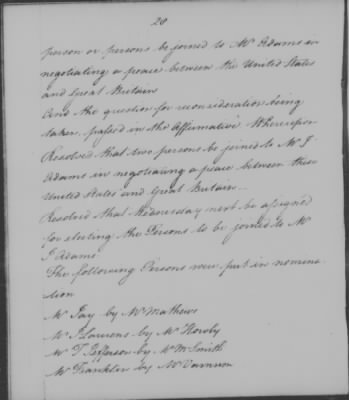 20
person or persons be joined to Mr Adams in
negotiating a peace between the United States
and Great Britain
And the question for reconsideration being
taken, passed in the affirmative Whereupon
Resolved that two persons be joined to Mr J.
Adams in negotiating a peace between these
United States and Great Britain.
Resolved that Wednesday next be assigned
for electing the Persons to be joined to Mr
J Adams.
The following Persons were put in nomina
tion
Mr Jay by Mr Mathews
Mr H Laurens by Mr
Mr T Jefferson by Mr M Smith
Mr Franklin by Mr Varnum